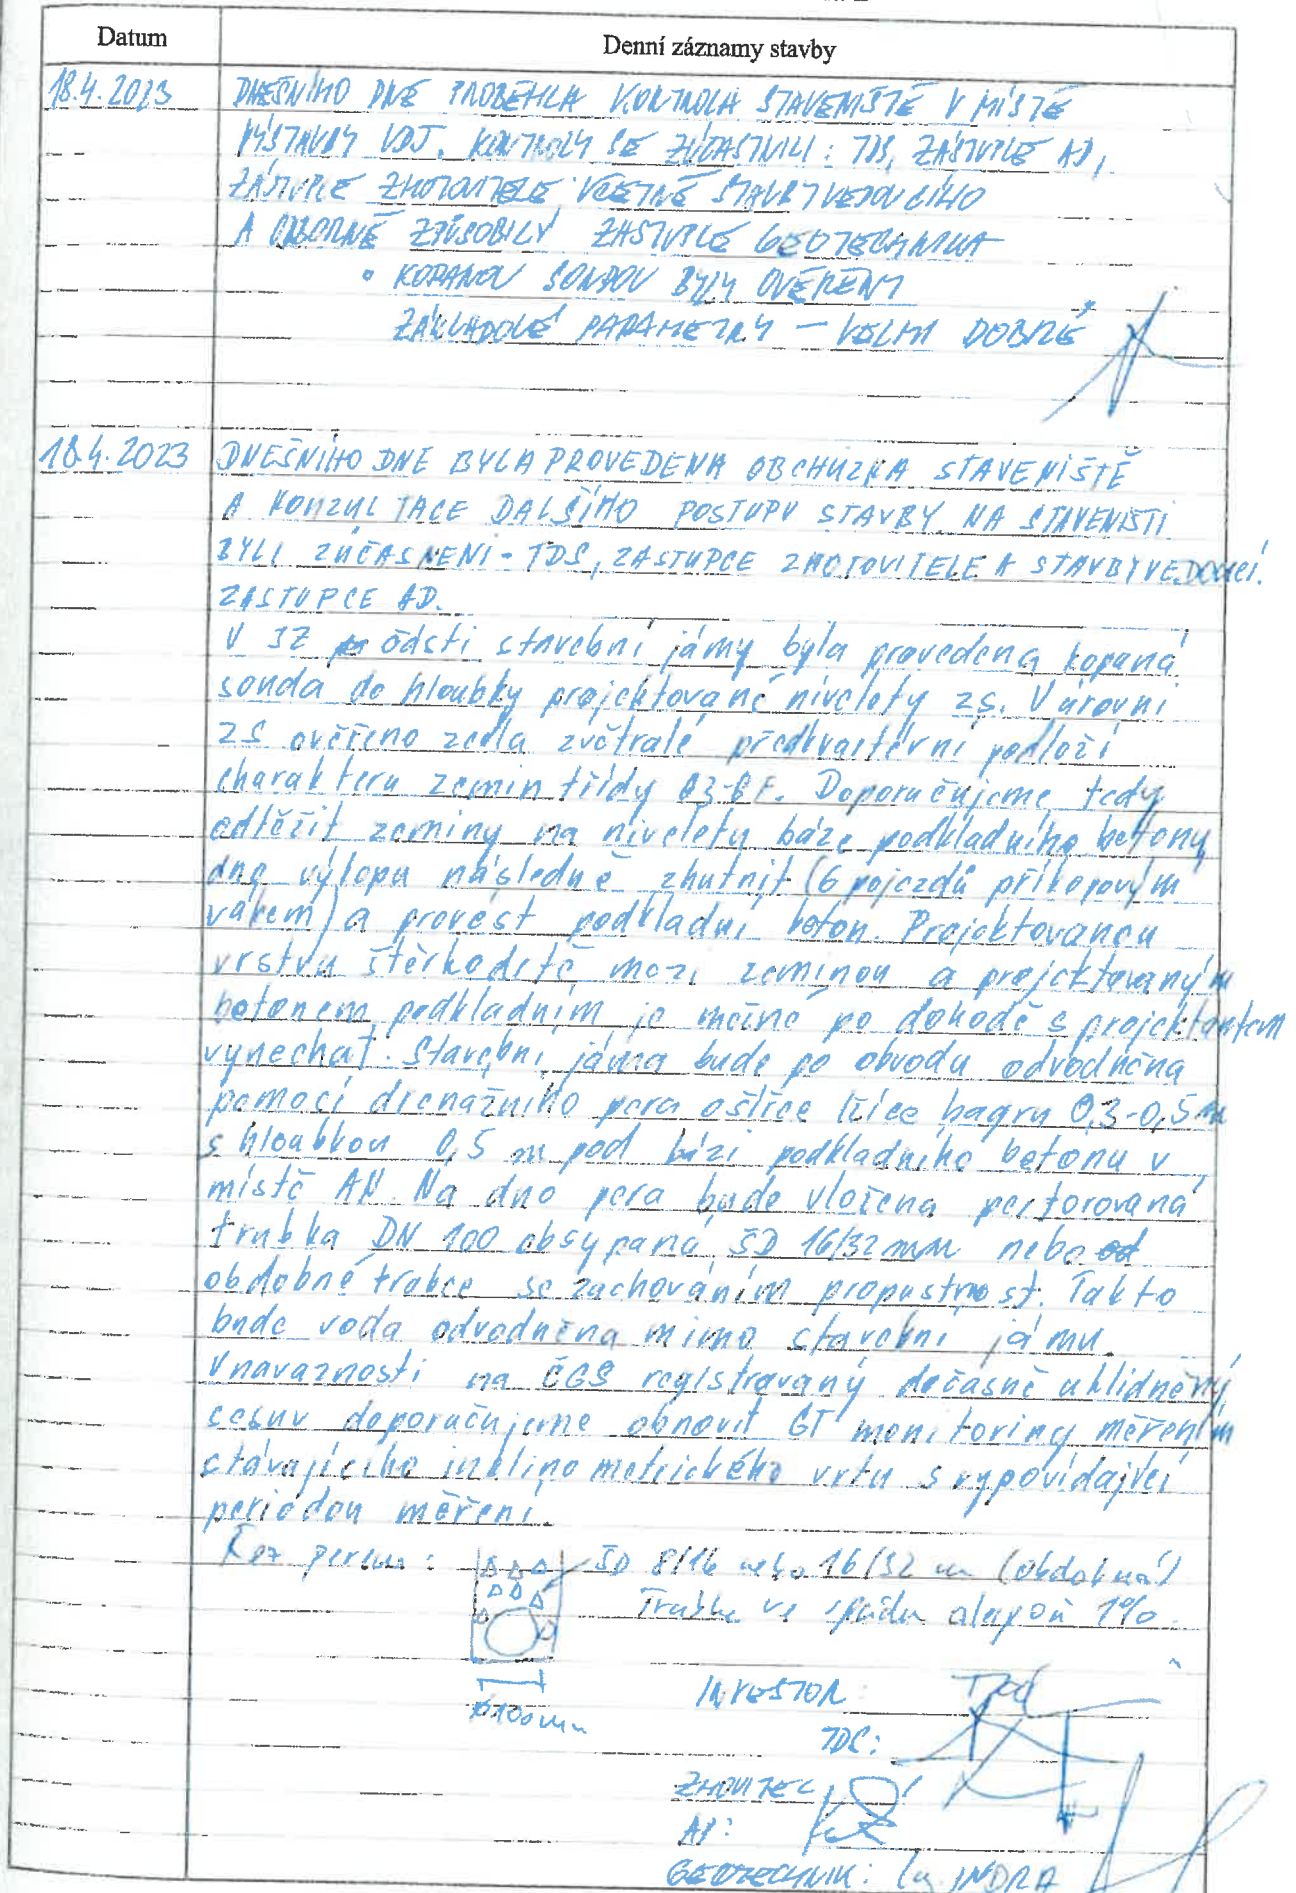 Datum
Denní záznamy stavby
18.4.2023
DNEŠNÍHO DNE PROBĚHLA KONTROLA STAVENIŠTĚ V MÍSTĚ
VÝSTAVBY VDJ. KONTROLY SE ZÚČASTNILI: TDS, ZÁSTUPCE AD,
ZÁSTUPCE ZHOTOVITELE VČETNĚ STAVBYVEDOUCÍHO
A ODBORNĚ ZPŮSOBILÝ ZÁSTUPCE GEOTECHNIKA
• KOPANOU SONDOU BYLY OVĚŘENY
ZÁKLADOVÉ PARAMETRY – VELMI DOBRÉ
18.4.2023
DNEŠNÍHO DNE BYLA PROVEDENA OBCHŮZKA STAVENIŠTĚ
A KONZULTACE DALŠÍHO POSTUPU STAVBY. NA STAVENIŠTI
BYLI ZÚČASNENI - TDS, ZASTUPCE ZHOTOVITELE A STAVBYVEDOUCÍ.
ZASTUPCE AD.
V JZ části stavební jámy byla provedena kopaná
sonda do hloubky projektované nivelety ZS. V úrovni
ZS ověřeno zcela zvětralé předkvartérní podloží
charakteru zemin třídy G3-GF. Doporučujeme tedy
odtěžit zeminy na niveletu báze podkladního betonu,
dno výkopu následně zhutnit (6 pojezdů příkopovým
válcem) a provést podkladní beton. Projektovanou
vrstvu štěrkodrtě mezi zeminou a projektovaným
betonem podkladním je možné po dohodě s projektantem
vynechat. Stavební jáma bude po obvodu odvodněna
pomocí drenážního pera o šířce lžíce bagru 0,3-0,5 m
s hloubkou 0,5 m pod bází podkladního betonu v
místě AN. Na dno pera bude vložena perforovaná
trubka DN 100 obsypaná ŠD 16/32 mm nebo
obdobné frakce se zachováním propustnost. Takto
bude voda odvodněna mimo stavební jámu.
V návaznosti na ČGS registrovaný dočasně uklidněný
sesuv doporučujeme obnovit GT monitoring měřením
stávajícího inklinometrického vrtu s vypovídající
periodou měření.
Řez perem:
ŠD 8/16 nebo 16/32 mm (obdobná)
Trubka ve spádu alespoň 1%.
100 mm
INVESTOR:
TDS:
ZHOVITEL
AD:
GEOTECHNIK: Ing. INDRA